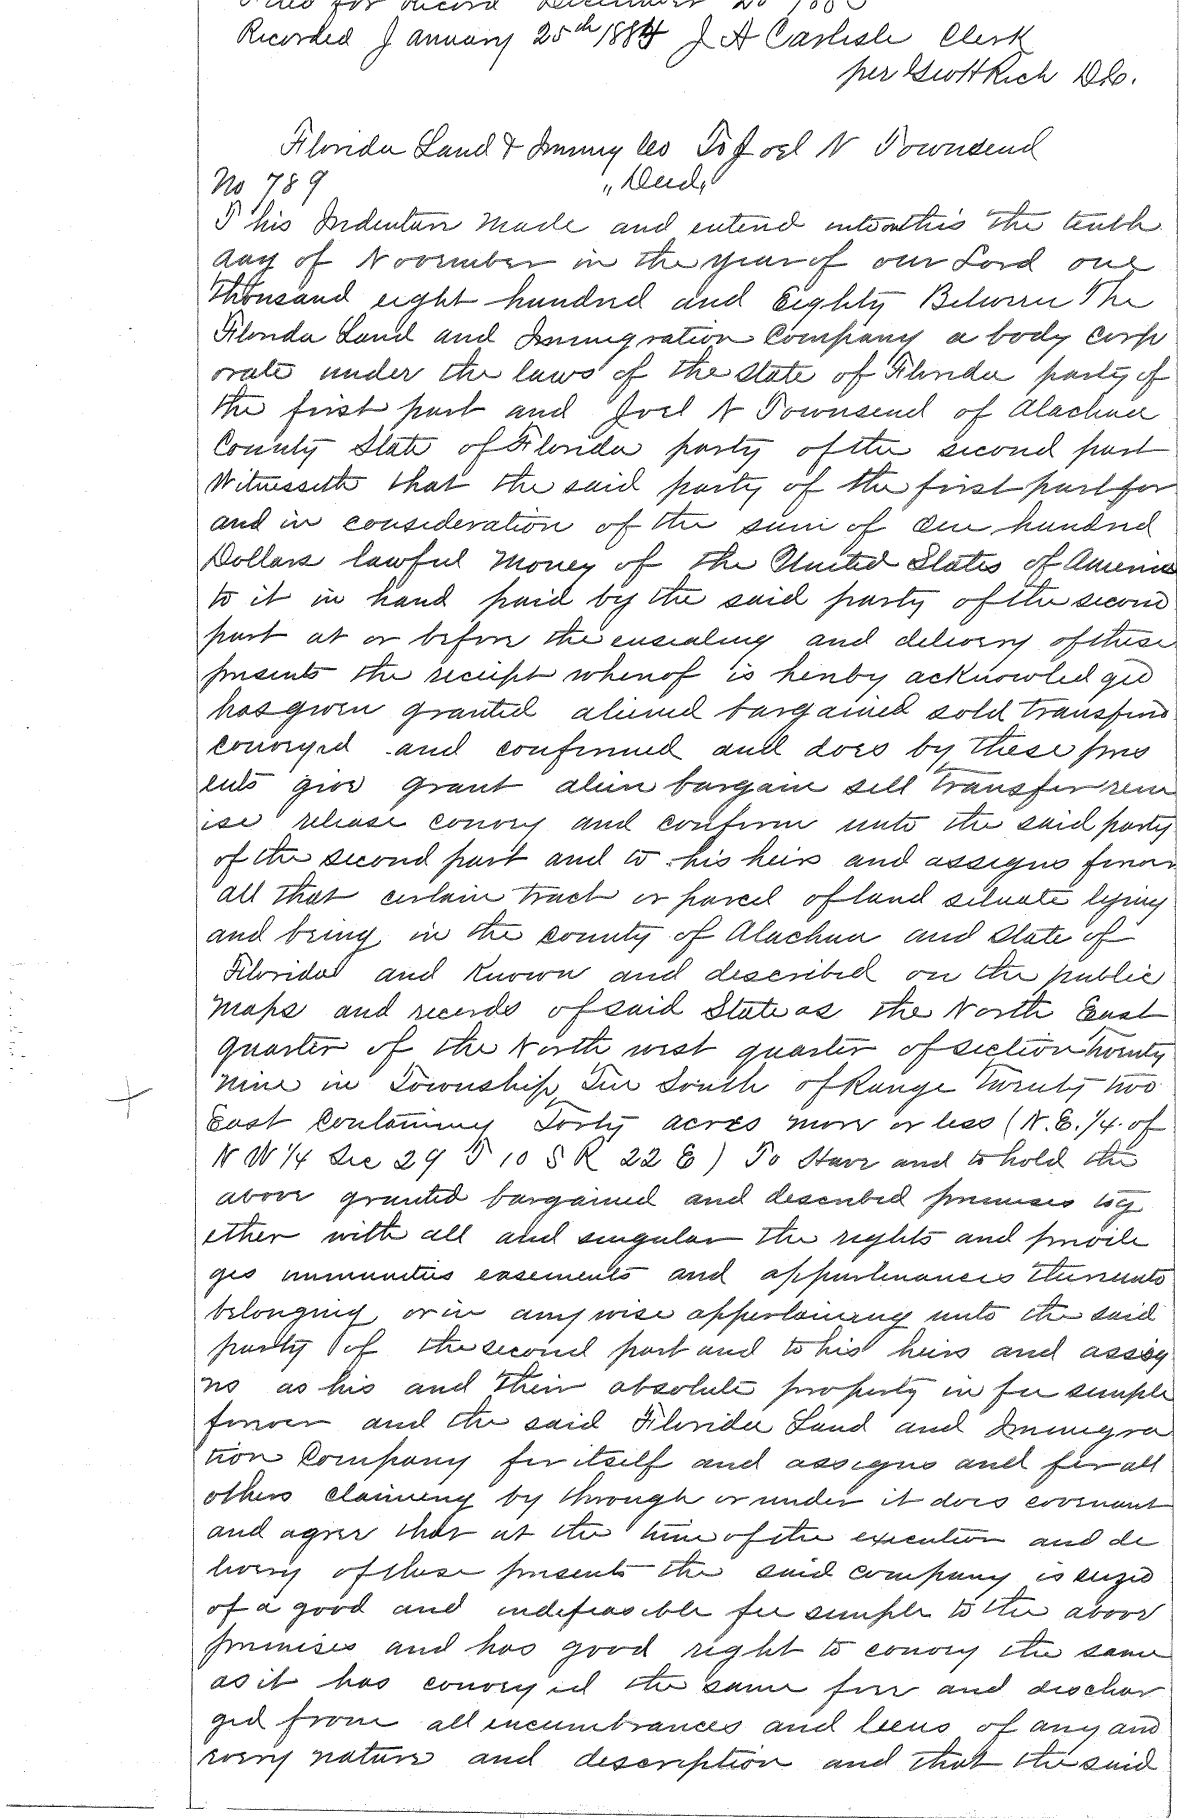 Filed for record December 20 188
Recorded January 25th 1884 J A Carlisle Clerk
per Geo H Rich D.C.
Florida Land & Immig Co To Joel N Townsend
No 789 "Deed"
This Indenture made and entered into on this the tenth
day of November in the year of our Lord one
thousand eight hundred and Eighty Between The
Florida Land and Immigration Company a body corp
orate under the laws of the State of Florida party of
the first part and Joel N Townsend of Alachua
County State of Florida party of the second part
Witnesseth that the said party of the first part for
and in consideration of the sum of One hundred
Dollars lawful money of the United States of America
to it in hand paid by the said party of the second
part at or before the ensealing and delivery of these
presents the receipt whereof is hereby acknowledged
has given granted aliened bargained sold transferred
conveyed and confirmed and does by these pres
ents give grant alien bargain sell transfer rem
ise release convey and confirm unto the said party
of the second part and to his heirs and assigns forever
all that certain tract or parcel of land situate lying
and being in the county of Alachua and State of
Florida and Known and described on the public
maps and records of said State as the North East
quarter of the North west quarter of section twenty
nine in Township Ten South of Range Twenty two
East containing Forty acres more or less (N.E. 1/4 of
N W 1/4 Sec 29 T 10 S R 22 E) To Have and to hold the
above granted bargained and described premises tog
ether with all and singular the rights and privile
ges immunities easements and appurtenances thereunto
belonging or in any wise appertaining unto the said
party of the second part and to his heirs and assig
ns as his and their absolute property in fee simple
forever and the said Florida Land and Immigra
tion Company for itself and assigns and for all
others claiming by through or under it does covenant
and agree that at the time of the execution and de
livery of these presents the said company is seized
of a good and indefeasible fee simple to the above
premises and has good right to convey the same
as it has conveyed the same free and dischar
ged from all encumbrances and liens of any and
every nature and description and that the said